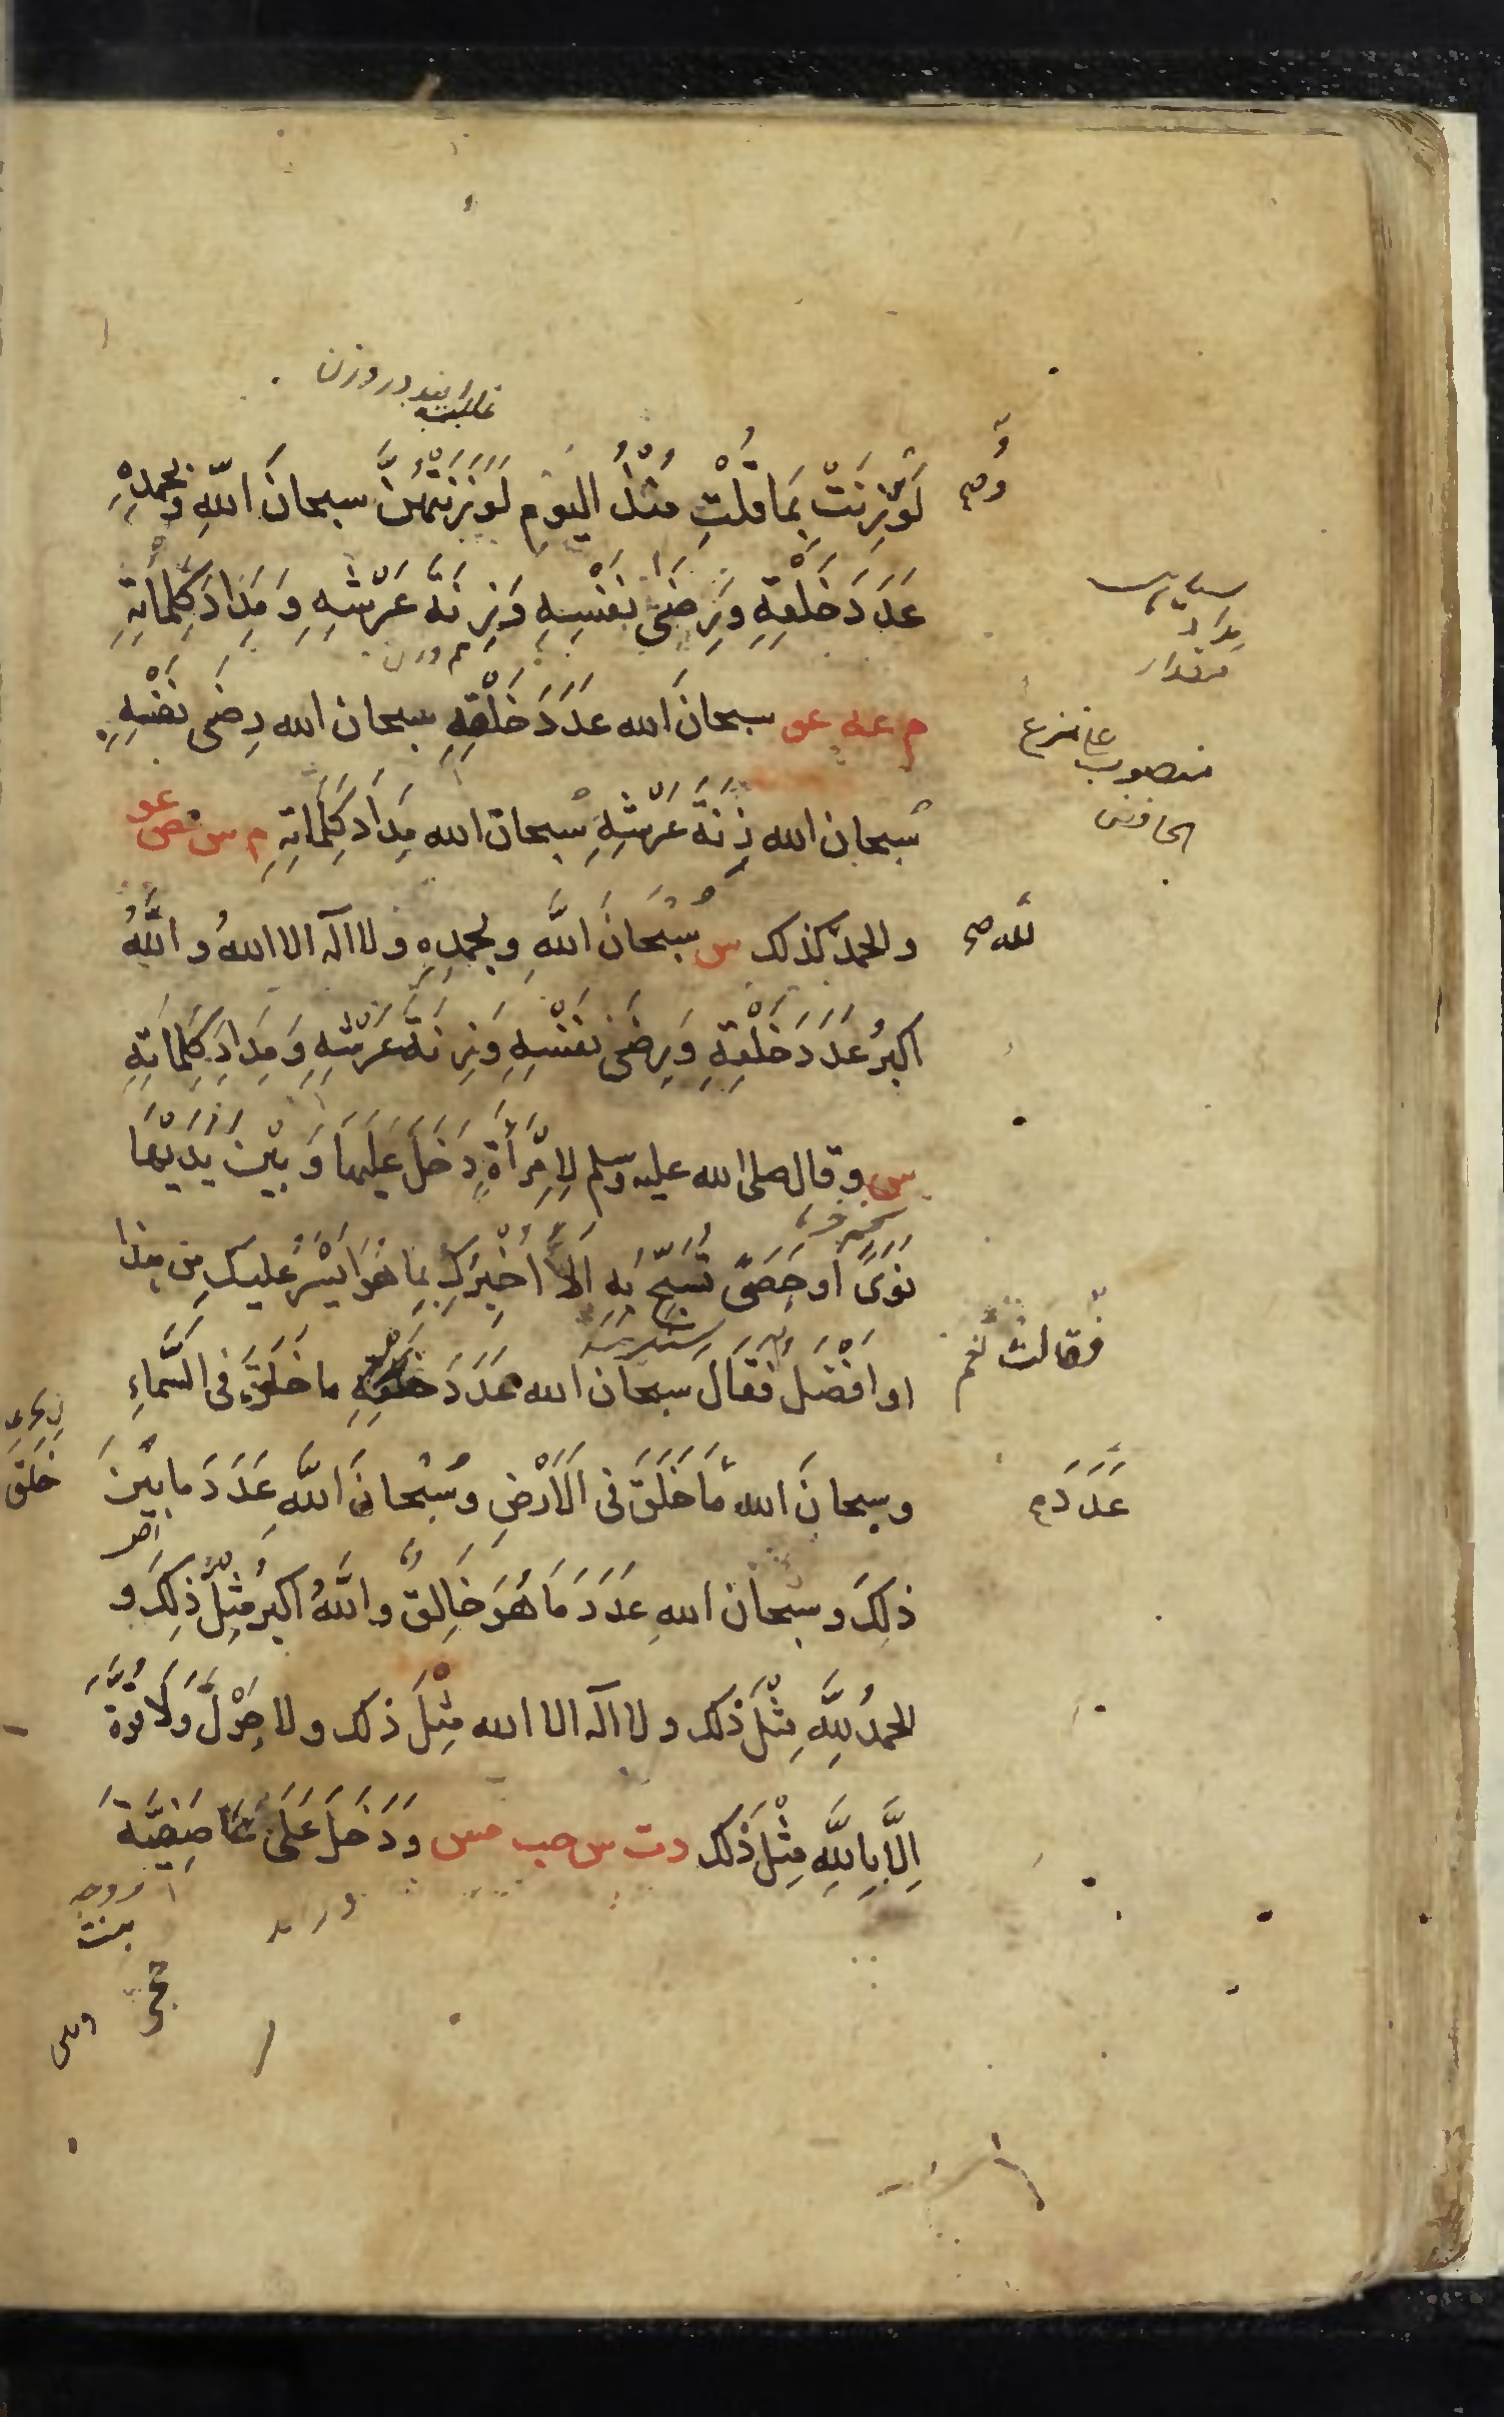 لَوْ وُزِنَتْ بِمَا قُلْتِ مُنْذُ اليَوْمِ لَوَزَنَتْهُنَّ سبحانَ اللّهِ وبحمدِهِ
عَدَدَ خَلْقِهِ وَرِضَى نَفْسِهِ وَزِنَةَ عَرْشِهِ وَمِدَادَ كَلِمَاتِهِ
م عه عو سبحانَ الله عَدَدَ خَلْقِهِ سبحان الله رِضَى نَفْسِهِ
سُبحان الله زِنَةَ عَرْشِهِ سُبحان الله مِدَادَ كَلِمَاتِهِ م س مص عو
والحمدُ كذلك س سُبْحَانَ اللَّهِ وبحمدِهِ ولا اله الا اللهُ واللَّهُ
اكبرُ عَدَدَ خَلْقِهِ وَرِضَى نَفْسِهِ وَزِنَةَ عَرْشِهِ وَمِدَادَ كَلِمَاتِهِ
س وقال صلى الله عليه وسلم لِامْرَأَةٍ دَخَلَ عَلَيهَا وَبَيْنَ يَدَيْهَا
نَوَىً او حَصَىً تُسَبِّحُ بِهِ اَلَا اُخْبِرُكِ بِمَا هُوَ اَيْسَرُ عليكِ مِن هذا
او اَفْضَلُ فَقَالَ سبحان الله عَدَدَ ما خَلَقَ فى السَّمَاءِ
وسبحانَ الله مَا خَلَقَ فى الْاَرْضِ وسُبْحَانَ اللَّهِ عَدَدَ ما بَيْنَ
ذلِكَ وسبحان اللهِ عَدَدَ مَا هُوَ خَالِقٌ واللَّهُ اكبرُ مِثْلَ ذلِكَ و
الحمدُ لِلَّهِ مِثْلَ ذلك ولا اله الا الله مِثْلَ ذلك ولا حَوْلَ وَلَا قُوَّةَ
اِلَّا بِاللَّهِ مِثْلَ ذَلك دت س حب مس وَدَخَلَ عَلَى صَفِيَّةَ
مداد
مقدار
منصوب على نزع
الخافض
لله صح
فقالت نعم
عَدَدَ م
خَلَقَ
بنت